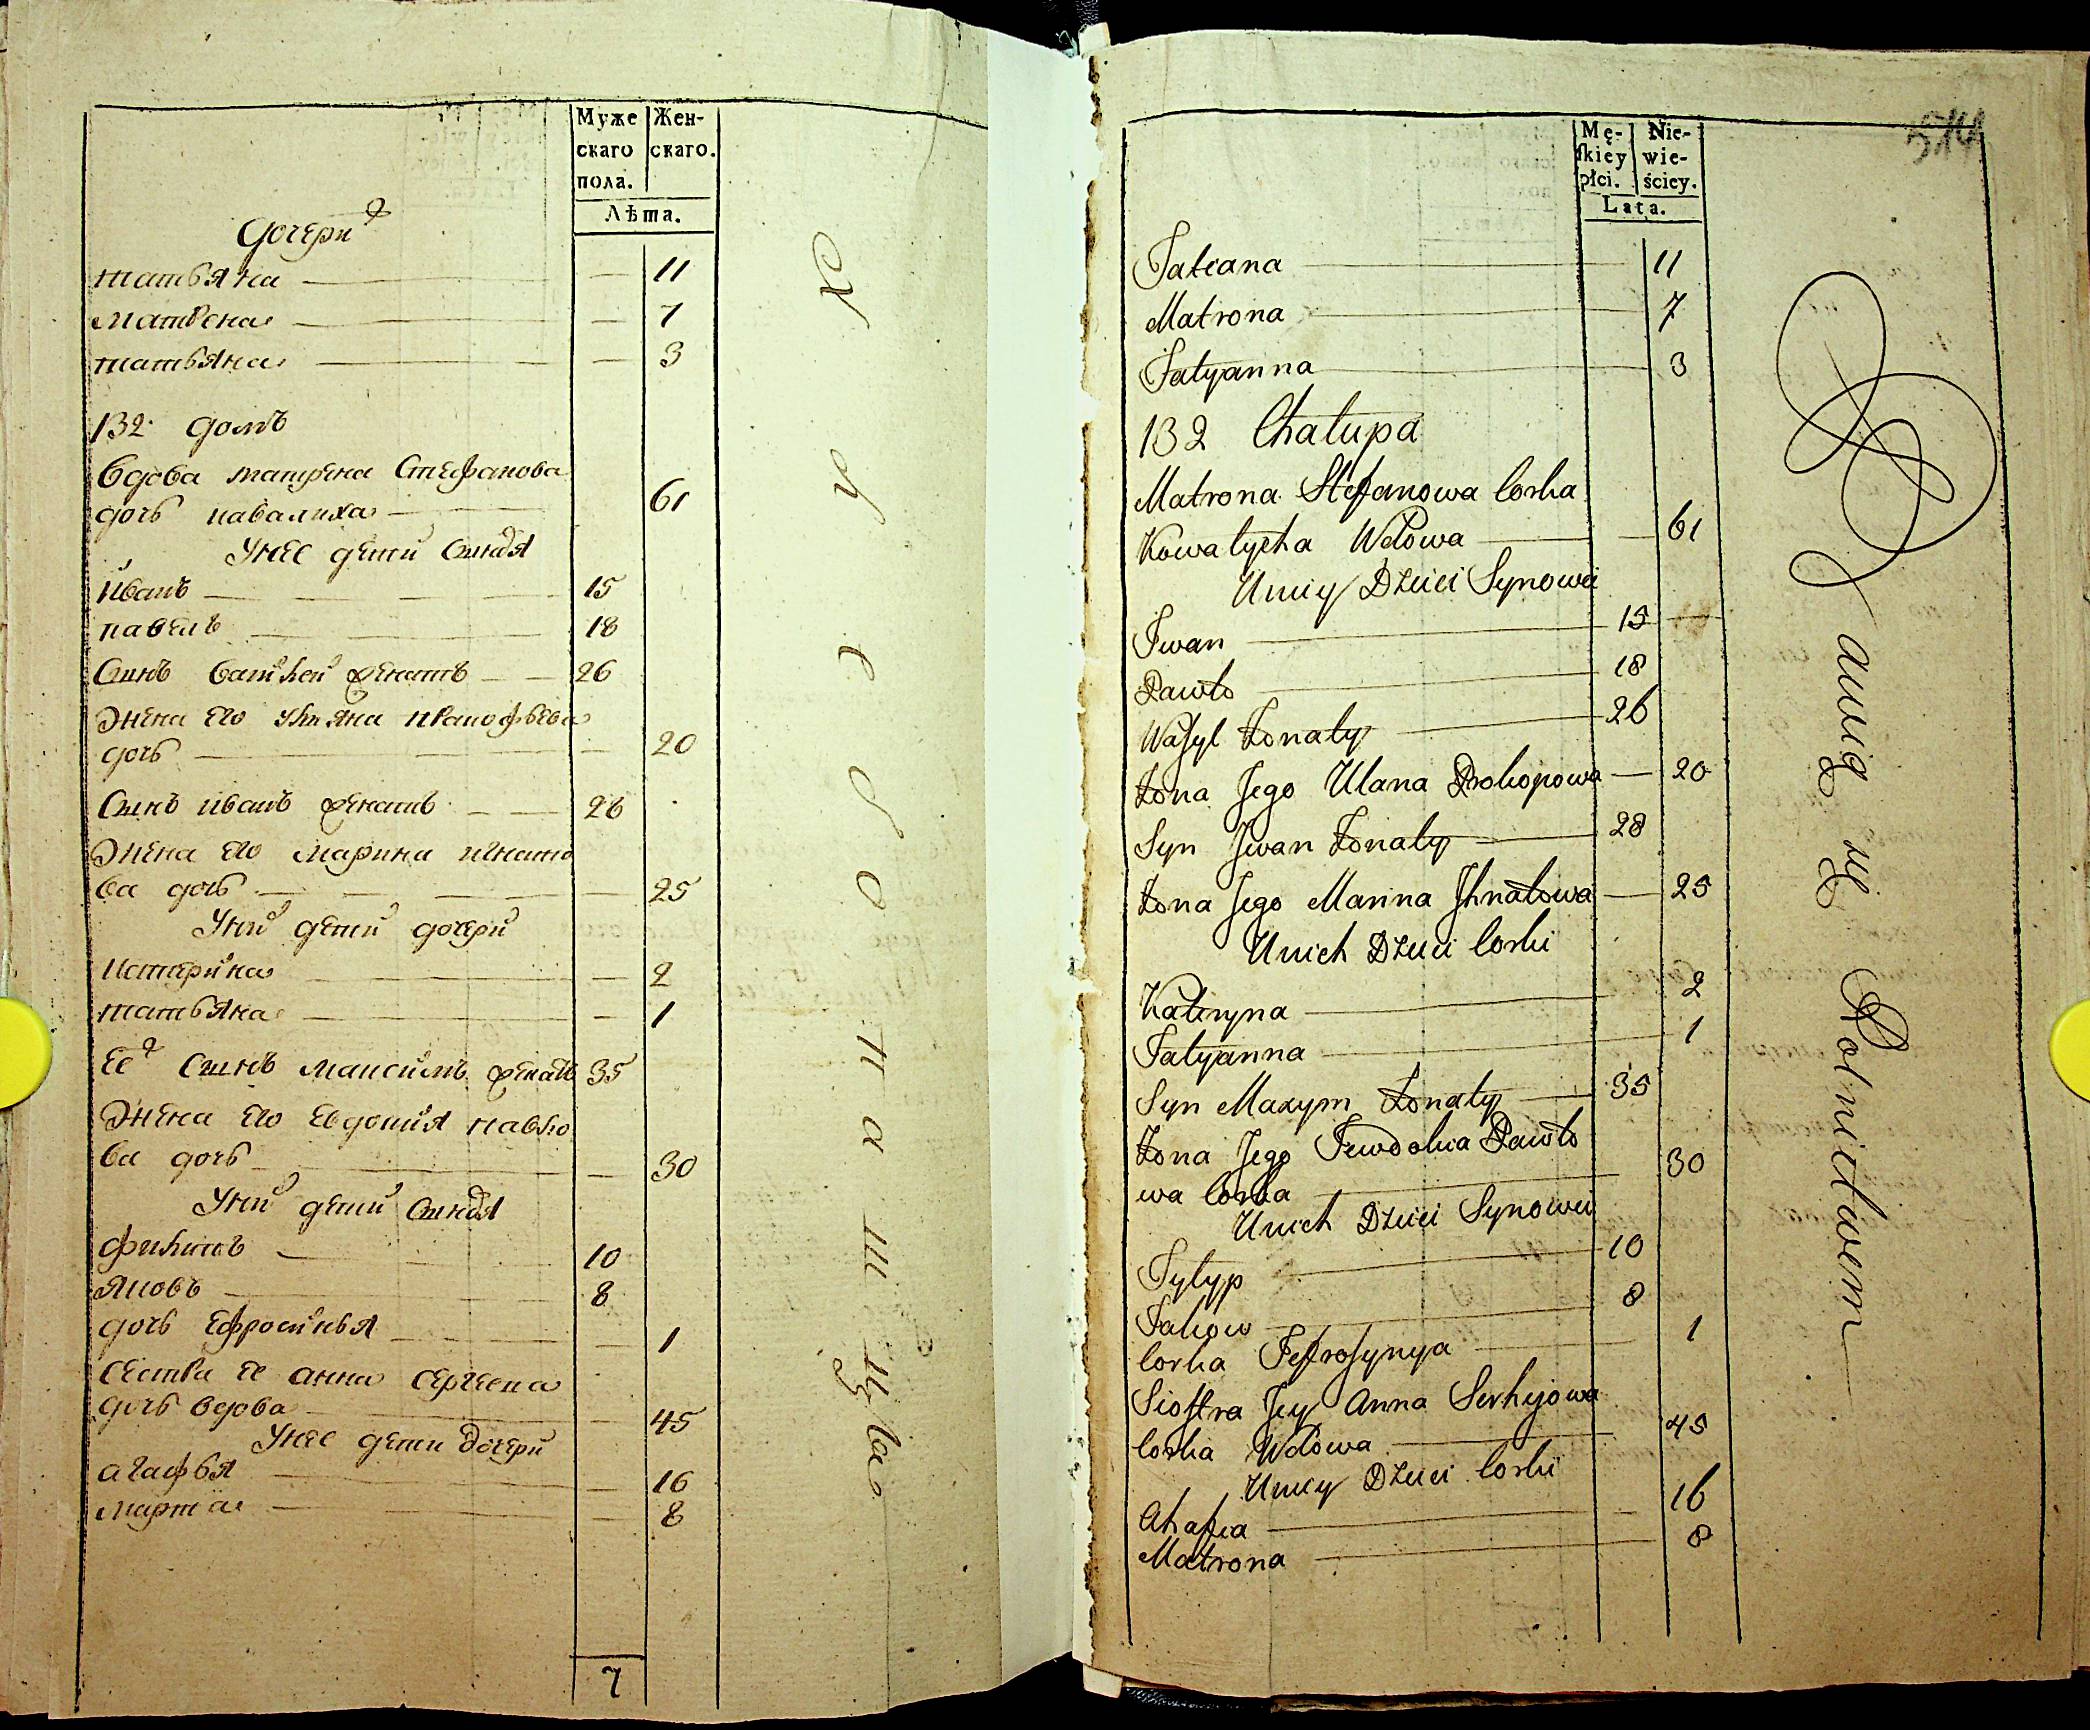 Муже
скаго
пола.
Жен-
скаго.
Лѣта.
дочери
татьяна — 11
матвена — 7
татьяна — 3
132 домъ
вдова матрена Стефанова
дочь кавалиха — 61
Унее дети Синовя
Иванъ — 15
павелъ — 18
Синъ василей женатъ — 26
Жена его ульяна прокофьева
дочь — 20
Синъ иванъ женатъ — 28
Жена его марина игнато
ва дочь — 25
Уних дети дочери
катерина — 2
татьяна — 1
Ее синъ максимъ женатъ 35
Жена его Евдокия павло
ва дочь — 30
Уних дети синовя
филипъ — 10
Яковъ — 8
дочь Ефросинья — 1
Сестра ее анна сергеева
дочь вдова — 45
Унее дети дочери
агафья — 16
марта — 8
7
514
Mę-
skiey
płci.
Nie-
wie-
ściey.
Lata.
Tatiana — 11
Matrona — 7
Tatyanna — 3
132 Chałupa
Matrona Stefanowa Corka
Kowalycha Wdowa — 61
Uniey Dzieci Synowei
Iwan — 15
Pawło — 18
Wasyl Żonaty — 26
Żona Jego Ulana Prokopowa — 20
Syn Iwan Żonaty — 28
Żona Jego Marina Ihnatowa — 25
Unich Dzieci Corki
Kateryna — 2
Tatyanna — 1
Syn Maxym Żonaty — 35
Żona Jego Jewdokia Pawło
wa Corka — 30
Unich Dzieci Synowei
Fylyp — 10
Jakow — 8
Corka Jefrosynya — 1
Siostra Jey Anna Serhijowa
Corka Wdowa — 45
Uniey Dzieci Corki
Ahafia — 16
Matrona — 8
Bawią się Rolnictwem